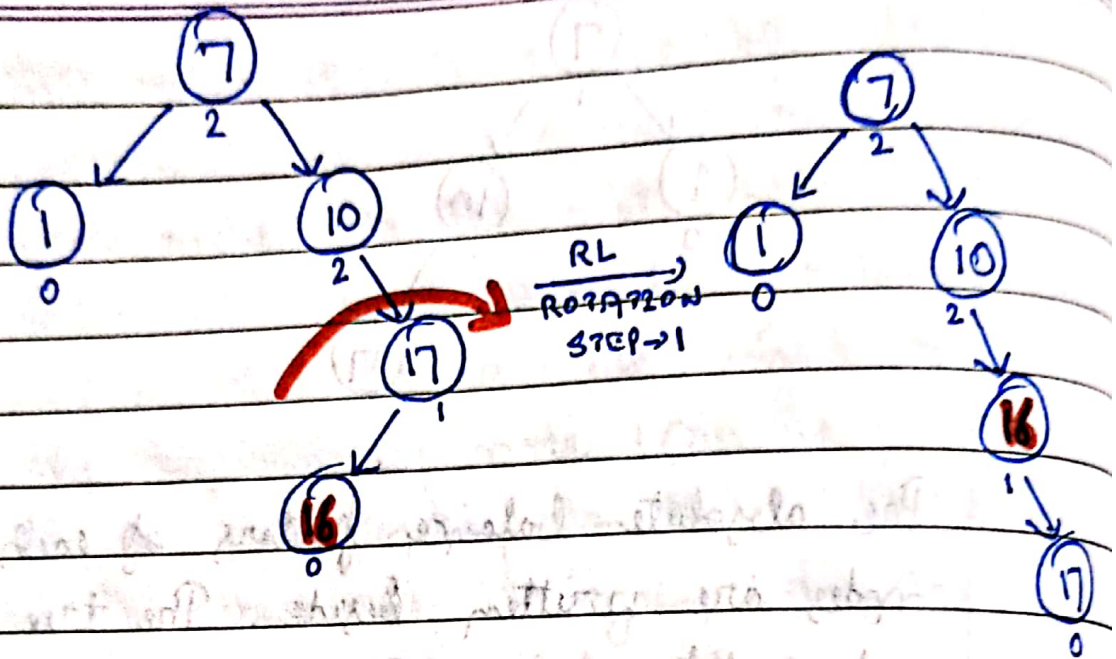 7
2
1
0
10
2
17
1
16
0
RL
ROTATION
STEP→1
7
2
1
0
10
2
16
1
17
0